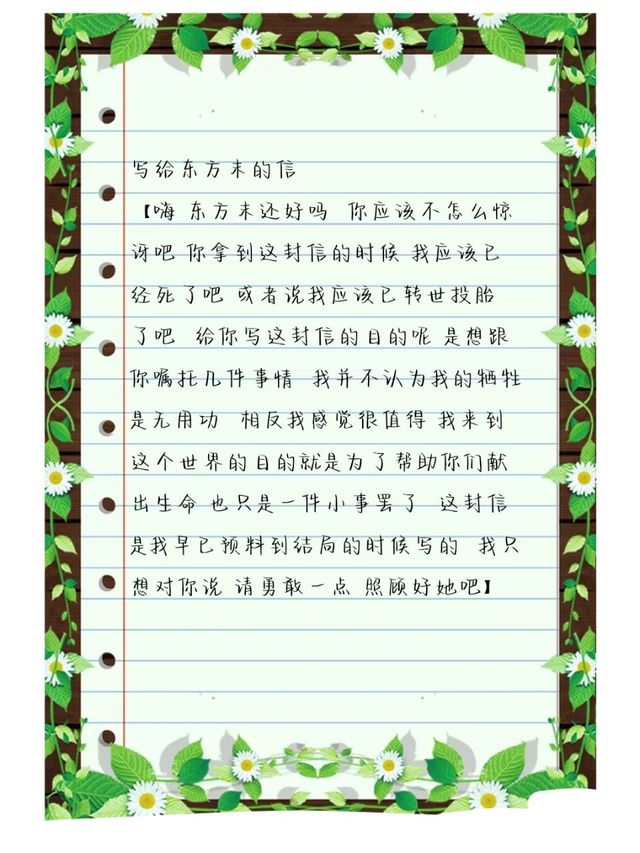 写给东方末的信
【嗨 东方末还好吗 你应该不怎么惊
讶吧 你拿到这封信的时候 我应该已
经死了吧 或者说我应该已转世投胎
了吧 给你写这封信的目的呢 是想跟
你嘱托几件事情 我并不认为我的牺牲
是无用功 相反我感觉很值得 我来到
这个世界的目的就是为了帮助你们献
出生命 也只是一件小事罢了 这封信
是我早已预料到结局的时候写的 我只
想对你说 请勇敢一点 照顾好她吧】